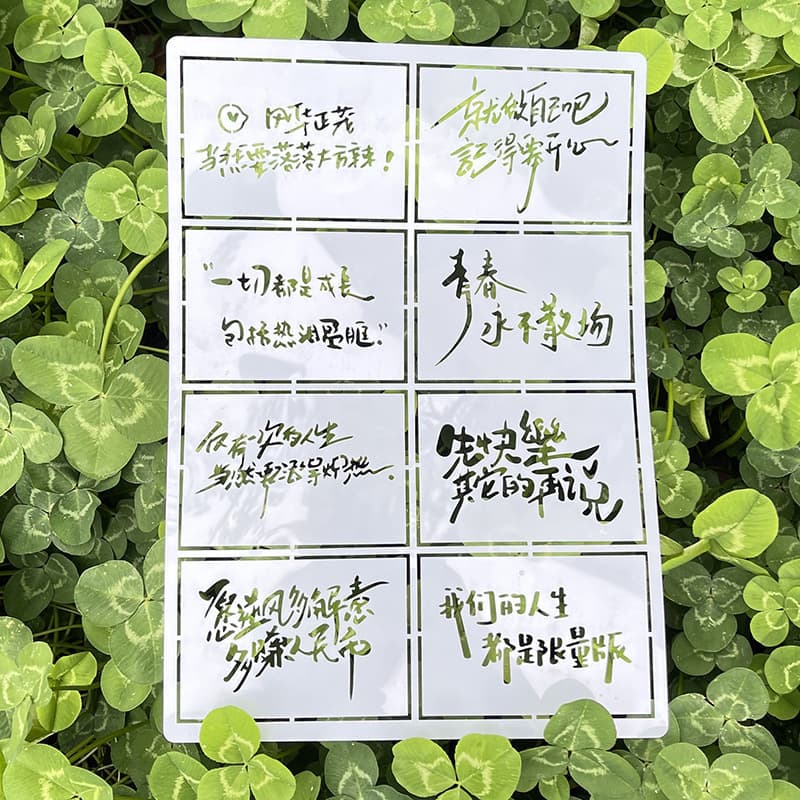 风华正茂
当然要落落大方辣！
就做自己吧
記得要开心
“一切都是成長
包括热泪盈眶”
青春
永不散场
仅有一次的人生
当然要活得炽热.
先快樂
其它的再说
愿风多解意
多赚人民币
我们的人生
都是限量版